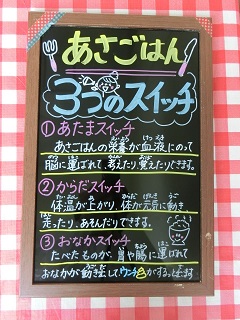 あさごはん
3つのスイッチ
①あたまスイッチ
あさごはんの栄養が血液にのって
脳に運ばれて、考えたり、覚えたりできます。
②からだスイッチ
体温が上がり、体が元気に動き
走ったり、あそんだりできます。
③おなかスイッチ
たべたものが、胃や腸に運ばれて
おなかが動き出してウンチがでます。